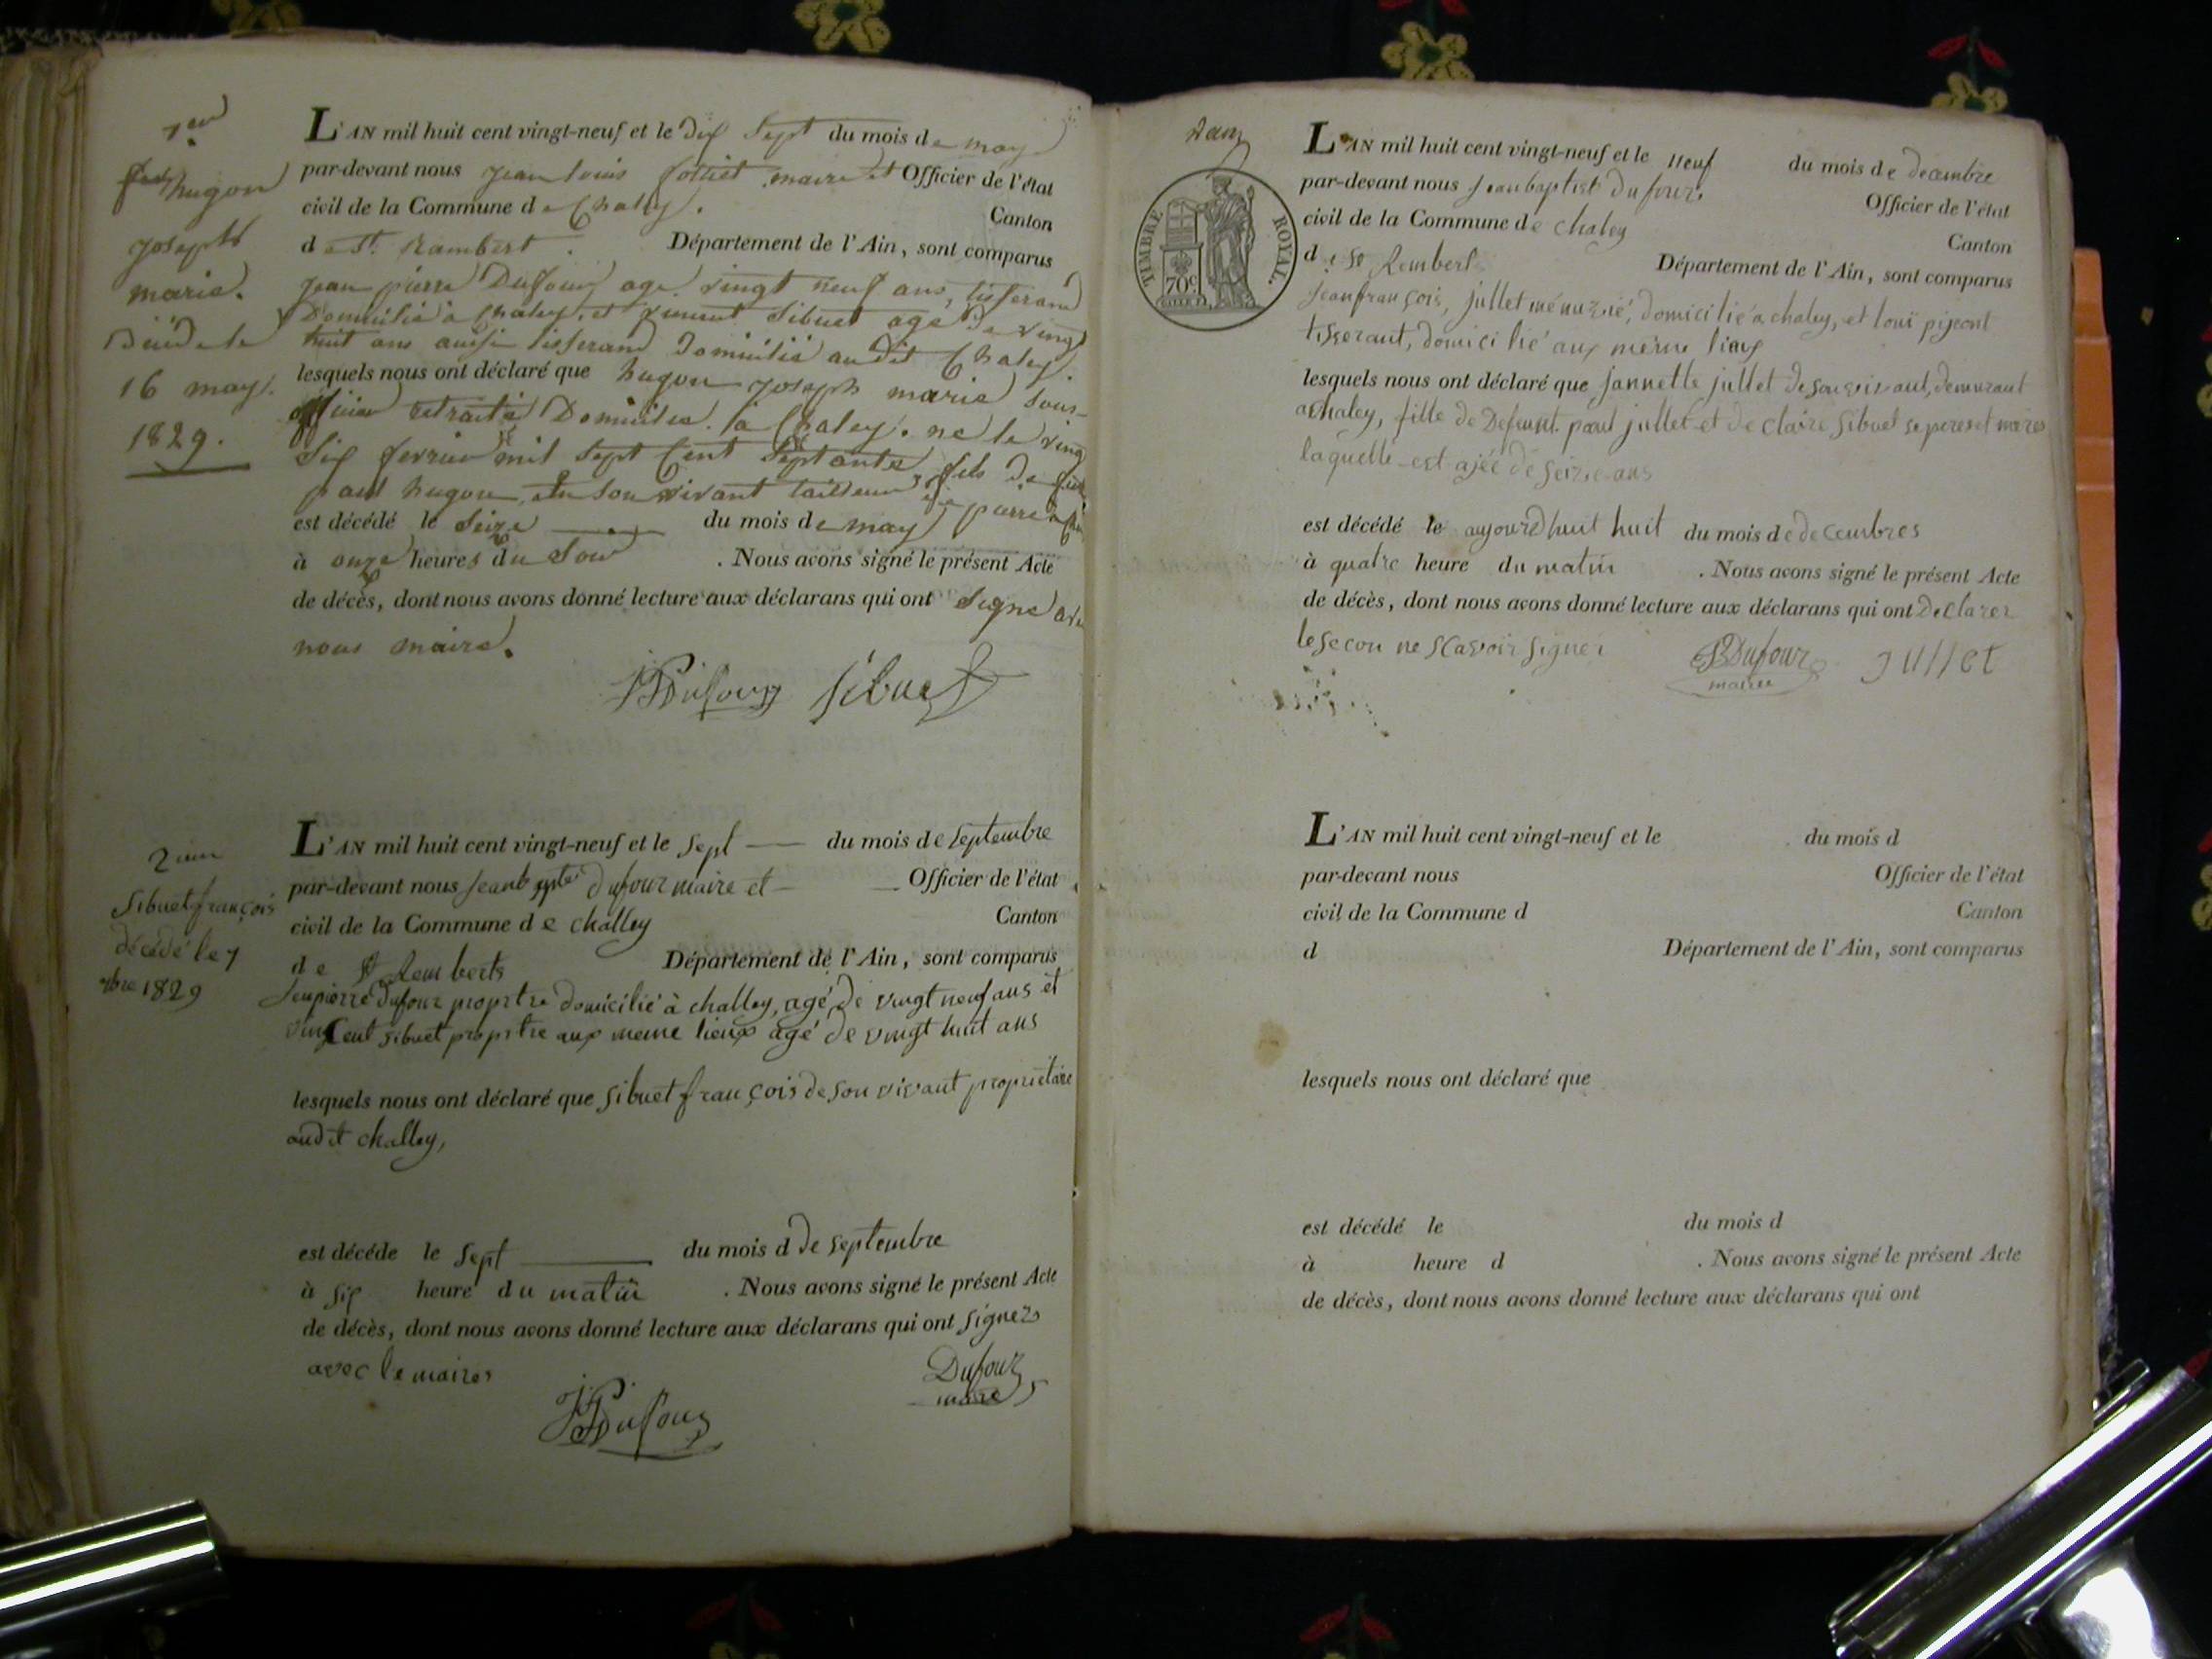 1er
hugon
joseph
marie.
Décédé le
16 may.
1829.
L'AN mil huit cent vingt-neuf et le dix sept du mois de may
par-devant nous jean louis maire et Officier de l'état
civil de la Commune de Chaley. Canton
de St. Rambert. Département de l'Ain, sont comparus
jean pierre Dufour age vingt neuf ans, tisserand
Domicilié a chaley, et vincent Sibuet agé de vingt
huit ans aussi tisserand Domicilié audit Chaley.
lesquels nous ont déclaré que hugon joseph marie sous-
officier retraité Domicilié à Chaley. né le vingt
six fevrier mil sept Cent septante, fils de feu
paul hugon, en son vivant tailleur de pierre
est décédé le seize du mois de may
à onze heures du Soir. Nous avons signé le présent Acte
de décès, dont nous avons donné lecture aux déclarans qui ont Signé avec
nous maire.
JPDufour Sibuet
2em
Sibuet françois
décédé le 7
7bre 1829
L'AN mil huit cent vingt-neuf et le sept du mois de septembre
par-devant nous Jeanbptte dufour maire et Officier de l'état
civil de la Commune de challey Canton
de St Remberts Département de l'Ain, sont comparus
Jenpierre Dufour proprtre domicilié à challey, agé de vingt neuf ans et
vincent sibuet proprtre aux meme lieux agé de vingt huit ans
lesquels nous ont déclaré que sibuet françois de son vivant propriétaire
audit challey,
est décéde le sept du mois d de septembre
à six heure du matin. Nous avons signé le présent Acte
de décès, dont nous avons donné lecture aux déclarans qui ont signers
avec le maires
Dufour
maire
JPDufour
TIMBRE ROYAL.
70c
L'AN mil huit cent vingt-neuf et le neuf du mois de decembre
par-devant nous Jeanbaptist Dufour Officier de l'état
civil de la Commune de chaley Canton
de St Rembert Département de l'Ain, sont comparus
Jeanfrançois, jullet ménuzié, domicilié a chaley, et louï pijeont
tisserant, domicilié aux même lieux
lesquels nous ont déclaré que Jannette jullet de son vivant, demurant
a Chaley, fille de Defeunt paul jullet et de claire Sibuet se peres et mères
laquelle est ajée de seize ans
est décédé le aujourdhuit huit du mois de decembres
à quatre heure du matin. Nous avons signé le présent Acte
de décès, dont nous avons donné lecture aux déclarans qui ont Declarer
le secon ne scavoir signer
Dufour jullet
maire
L'AN mil huit cent vingt-neuf et le du mois d
par-devant nous Officier de l'état
civil de la Commune d Canton
d Département de l'Ain, sont comparus
lesquels nous ont déclaré que
est décédé le du mois d
à heure d . Nous avons signé le présent Acte
de décès, dont nous avons donné lecture aux déclarans qui ont